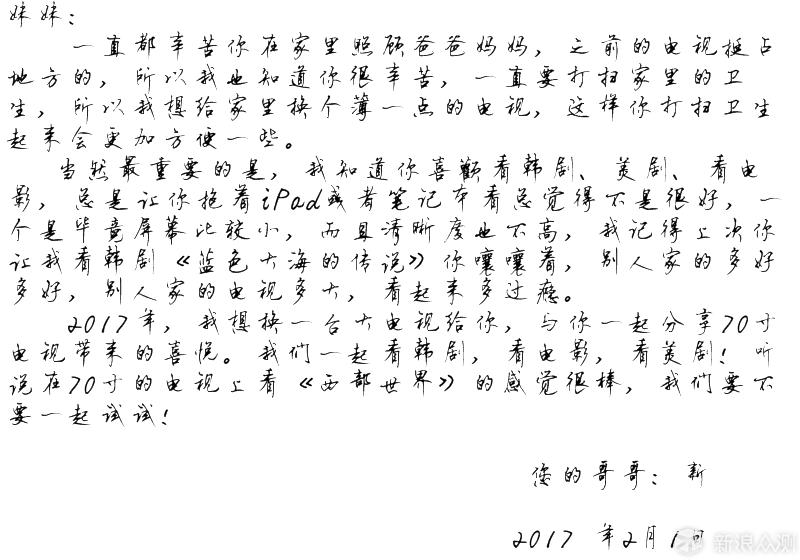 妹妹：
一直都辛苦你在家里照顾爸爸妈妈，之前的电视挺占
地方的，所以我也知道你很辛苦，一直要打扫家里的卫
生，所以我想给家里换个薄一点的电视，这样你打扫卫生
起来会更加方便一些。
当然最重要的是，我知道你喜欢看韩剧、美剧、看电
影，总是让你抱着iPad或者笔记本看总觉得不是很好，一
个是毕竟屏幕比较小，而且清晰度也不高，我记得上次你
让我看韩剧《蓝色大海的传说》你嚷嚷着，别人家的多好
多好，别人家的电视多大，看起来多过瘾。
2017年，我想换一台大电视给你，与你一起分享70寸
电视带来的喜悦。我们一起看韩剧，看电影，看美剧！听
说在70寸的电视上看《西部世界》的感觉很棒，我们要不
要一起试试！
您的哥哥：新
2017 年2月1日
新浪众测